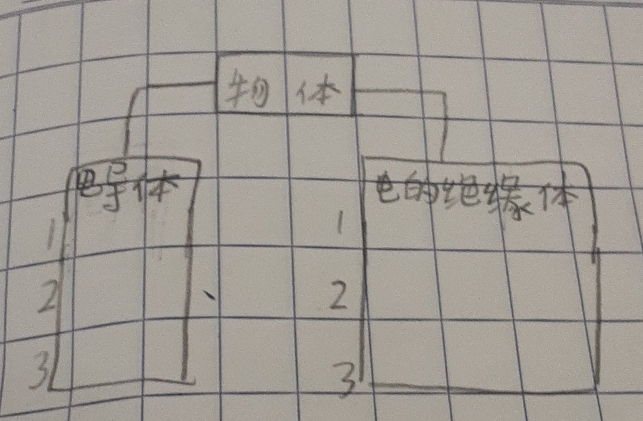 物体
电导体
电的绝缘体
1
2
3
1
2
3